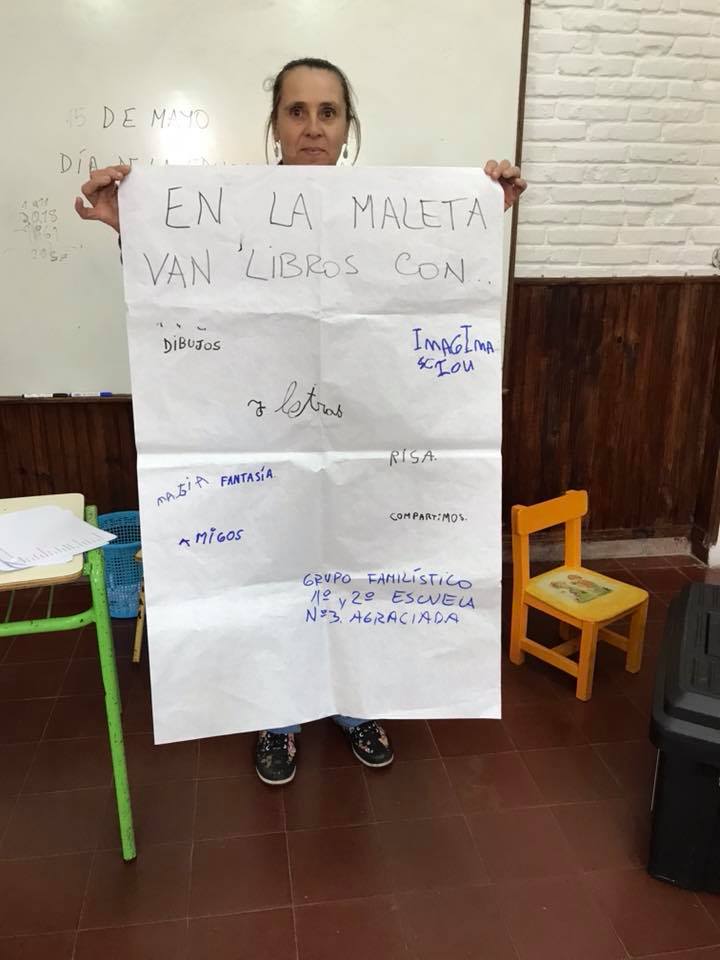 15 DE MAYO
DÍA DE LA
2018
EN LA MALETA
VAN LIBROS CON...
DIBUJOS
IMAGIMA
SCIOU
y letras
RISA.
MAGIA FANTASÍA
COMPARTIMOS.
AMIGOS
GRUPO FAMILÍSTICO
1º y 2º ESCUELA
Nº3. AGRACIADA